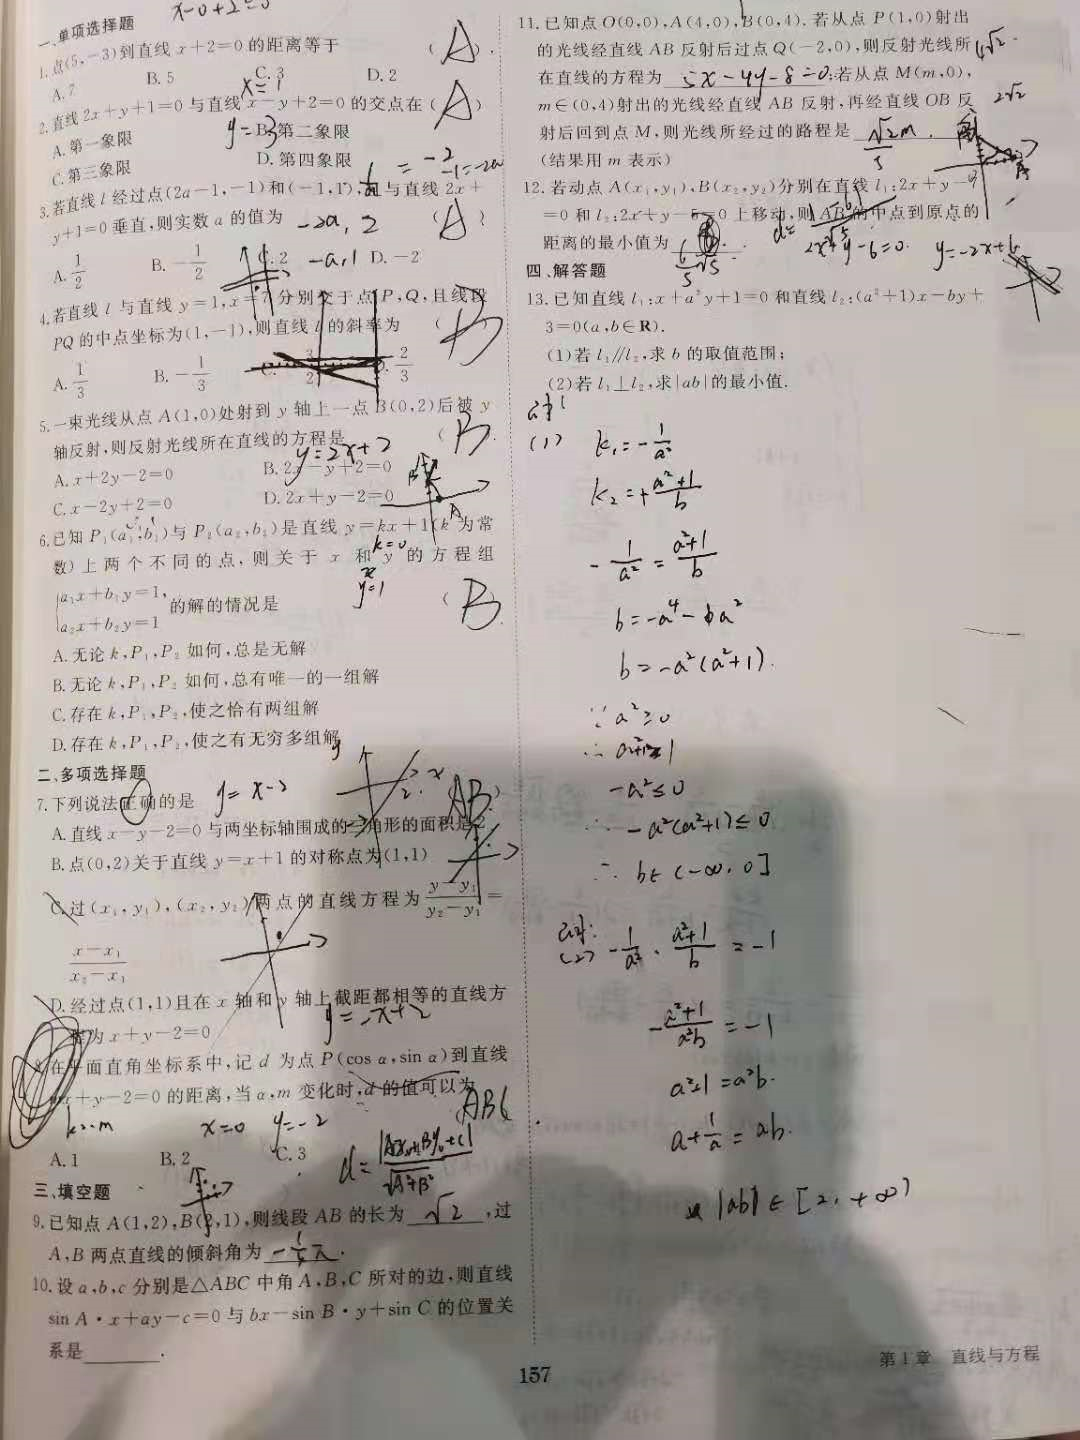 x-0+2=0
一、单项选择题
1.点(5,-3)到直线 x+2=0 的距离等于 ( A ).
A.7 B.5 C.3 D.2
x=1
2.直线 2x+y+1=0 与直线 x-y+2=0 的交点在( A )
A.第一象限 B.第二象限
y=3
C.第三象限 D.第四象限
3.若直线 l 经过点(2a-1,-1)和(-1,1),且与直线 2x+
y+1=0 垂直,则实数 a 的值为 -2a, 2 ( A )
A. 1/2 B. -1/2 C.2 -a,1 D.-2
4.若直线 l 与直线 y=1,x=7 分别交于点 P,Q,且线段
PQ 的中点坐标为(1,-1),则直线 l 的斜率为 ( B
A. 1/3 B. -1/3 C. 3/2 D. 2/3
5.一束光线从点 A(1,0)处射到 y 轴上一点 B(0,2)后被 y
轴反射,则反射光线所在直线的方程是 ( B ).
y=2x+2
A.x+2y-2=0 B.2x-y+2=0
C.x-2y+2=0 D.2x+y-2=0
6.已知 P₁(a₁,b₁)与 P₂(a₂,b₂)是直线 y=kx+1(k 为常
数)上两个不同的点,则关于 x 和 y 的方程组
k=0
a₁x+b₁y=1,
的解的情况是 ( B
a₂x+b₂y=1
y=1
A.无论 k,P₁,P₂ 如何,总是无解
B.无论 k,P₁,P₂ 如何,总有唯一的一组解
C.存在 k,P₁,P₂,使之恰有两组解
D.存在 k,P₁,P₂,使之有无穷多组解
二、多项选择题
7.下列说法正确的是 y=x-2 (AB)
A.直线 x-y-2=0 与两坐标轴围成的三角形的面积是 2
B.点(0,2)关于直线 y=x+1 的对称点为(1,1)
C.过(x₁,y₁),(x₂,y₂)两点的直线方程为 (y-y₁)/(y₂-y₁)=
(x-x₁)/(x₂-x₁)
D.经过点(1,1)且在 x 轴和 y 轴上截距都相等的直线方
程为 x+y-2=0 y=-x+2
8.在平面直角坐标系中,记 d 为点 P(cos α,sin α)到直线
mx+y-2=0 的距离,当 α,m 变化时,d 的值可以为
ABC
k=-m x=0 y=-2
A.1 B.2 C.3
三、填空题
9.已知点 A(1,2),B(2,1),则线段 AB 的长为 √2 ,过
A,B 两点直线的倾斜角为
10.设 a,b,c 分别是△ABC 中角 A,B,C 所对的边,则直线
sin A·x+ay-c=0 与 bx-sin B·y+sin C 的位置关
系是________.
11.已知点 O(0,0),A(4,0),B(0,4).若从点 P(1,0)射出
的光线经直线 AB 反射后过点 Q(-2,0),则反射光线所
4√2
在直线的方程为 5x-4y-8=0;若从点 M(m,0),
m∈(0,4)射出的光线经直线 AB 反射,再经直线 OB 反
2√2
射后回到点 M,则光线所经过的路程是 √2m/5 .
(结果用 m 表示)
12.若动点 A(x₁,y₁),B(x₂,y₂)分别在直线 l₁:2x+y-7
=0 和 l₂:2x+y-5=0 上移动,则 AB 的中点到原点的
距离的最小值为 6/5 √5 .
2x+y-6=0. y=-2x+6
四、解答题
13.已知直线 l₁:x+a²y+1=0 和直线 l₂:(a²+1)x-by+
3=0(a,b∈R).
(1)若 l₁∥l₂,求 b 的取值范围;
(2)若 l₁⊥l₂,求|ab|的最小值.
(1) k₁=-1/a²
k₂=+(a²+1)/b
-1/a²=(a²+1)/b
b=-a⁴-a²
b=-a²(a²+1).
∵a²≥0
∴a²+1≥1
-a²≤0
∴-a²(a²+1)≤0
∴b∈(-∞,0]
(2) -1/a²·(a²+1)/b=-1
-(a²+1)/(a²b)=-1
a²+1=a²b.
a+1/a=ab.
|ab|∈[2,+∞)
157
第 1 章 直线与方程